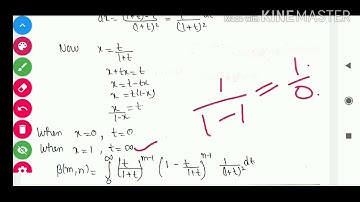 Made with KINEMASTER
dx = (1+t)-t / (1+t)² = 1 / (1+t)² dt
Now x = t/1+t
x+tx = t
x = t-tx
x = t(1-x)
x/1-x = t
1/1-1 = 1/0
When x=0, t=0
When x=1, t=∞ ✓
β(m,n) = ∫₀^∞ (t/1+t)^m-1 (1 - t/1+t)^n-1 1/(1+t)² dt